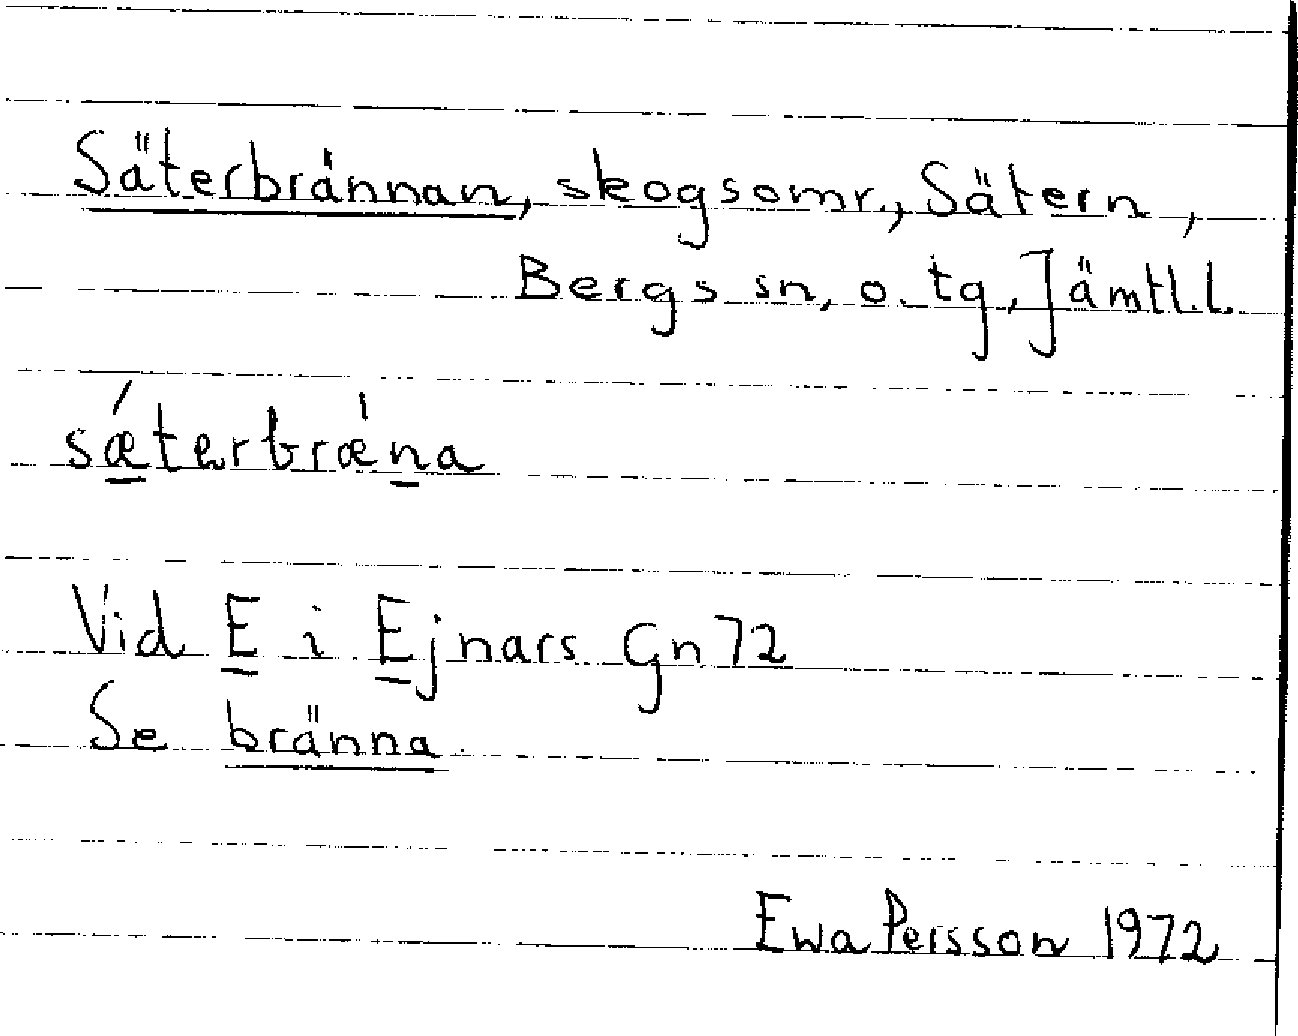 Säterbrännan, skogsomr., Sätern,
Bergs sn, o. tg, Jämtl.l.
sǽterbræ̍na
Vid E i Ejnars Gn 72
Se bränna
Ewa Persson 1972